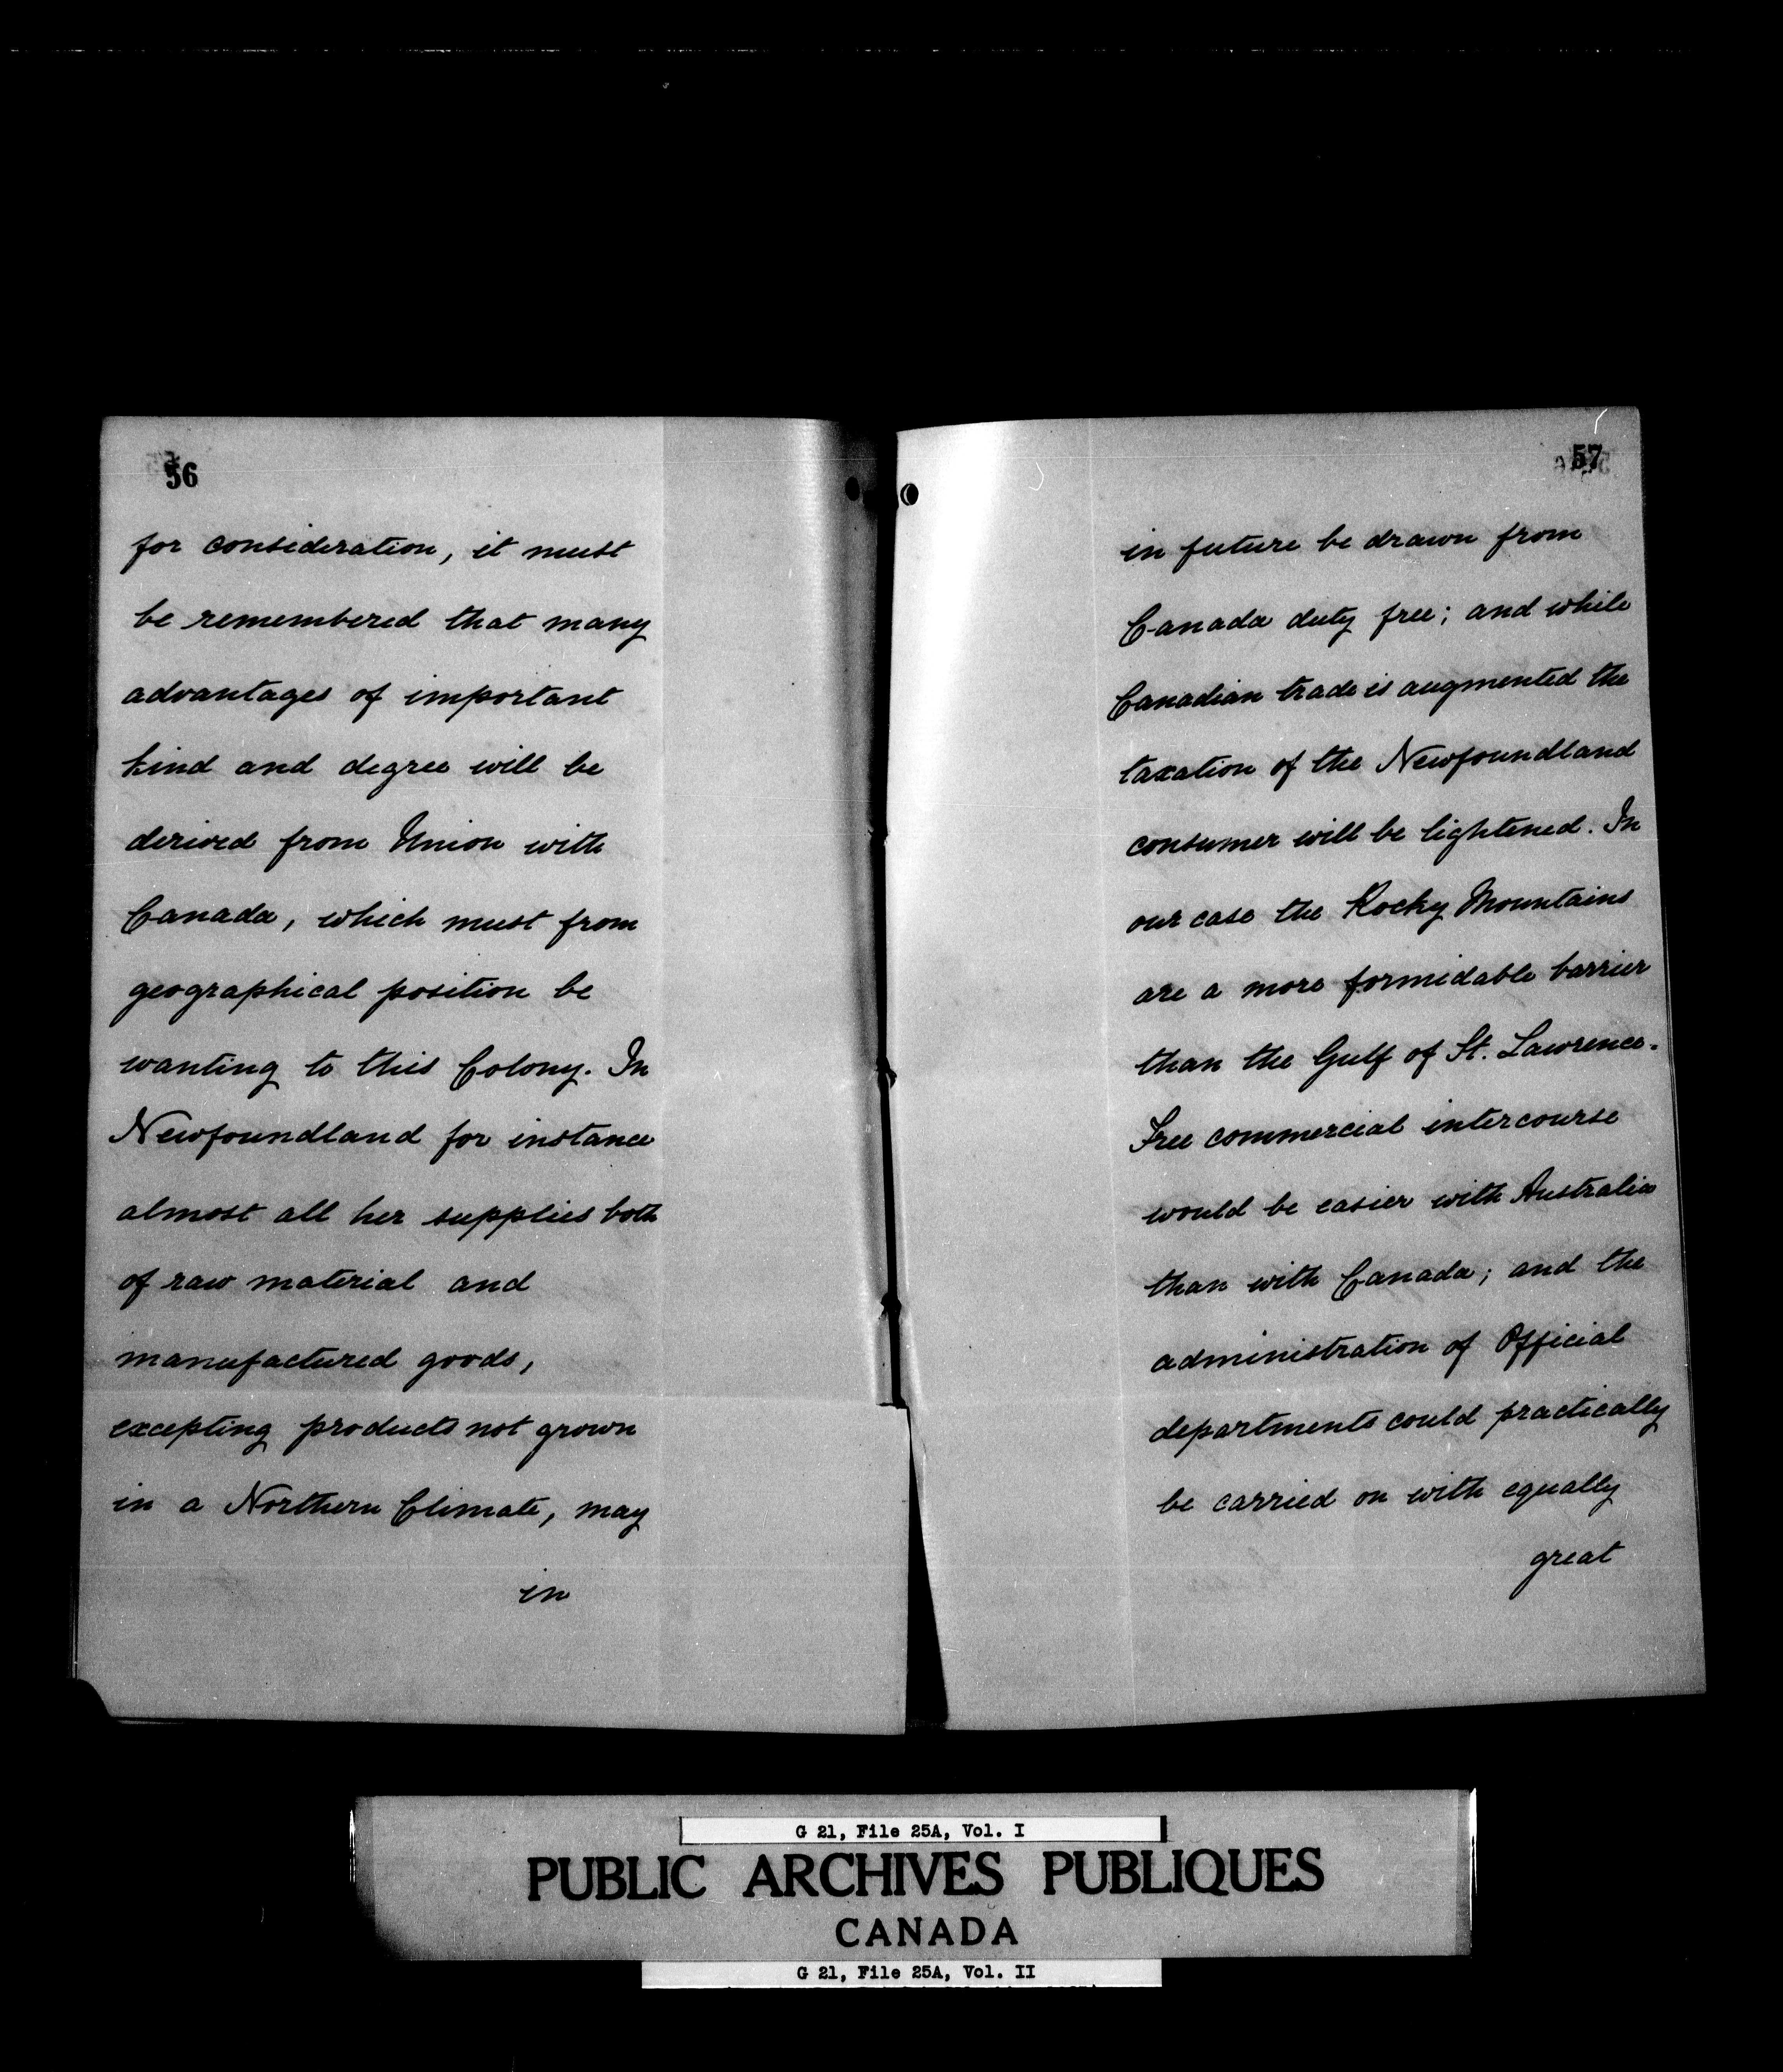 56
for consideration, it must
be remembered that many
advantages of important
kind and degree will be
derived from Union with
Canada, which must from
geographical position be
wanting to this Colony. In
Newfoundland for instance
almost all her supplies both
of raw material and
manufactured goods,
excepting products not grown
in a Northern Climate, may
in
57
in future be drawn from
Canada duty free; and while
Canadian trade is augmented the
taxation of the Newfoundland
consumer will be lightened. In
our case the Rocky Mountains
are a more formidable barrier
than the Gulf of St. Lawrence.
Free commercial intercourse
would be easier with Australia
than with Canada; and the
administration of Official
departments could practically
be carried on with equally
great
G 21, File 25A, Vol. I
PUBLIC ARCHIVES PUBLIQUES
CANADA
G 21, File 25A, Vol. II